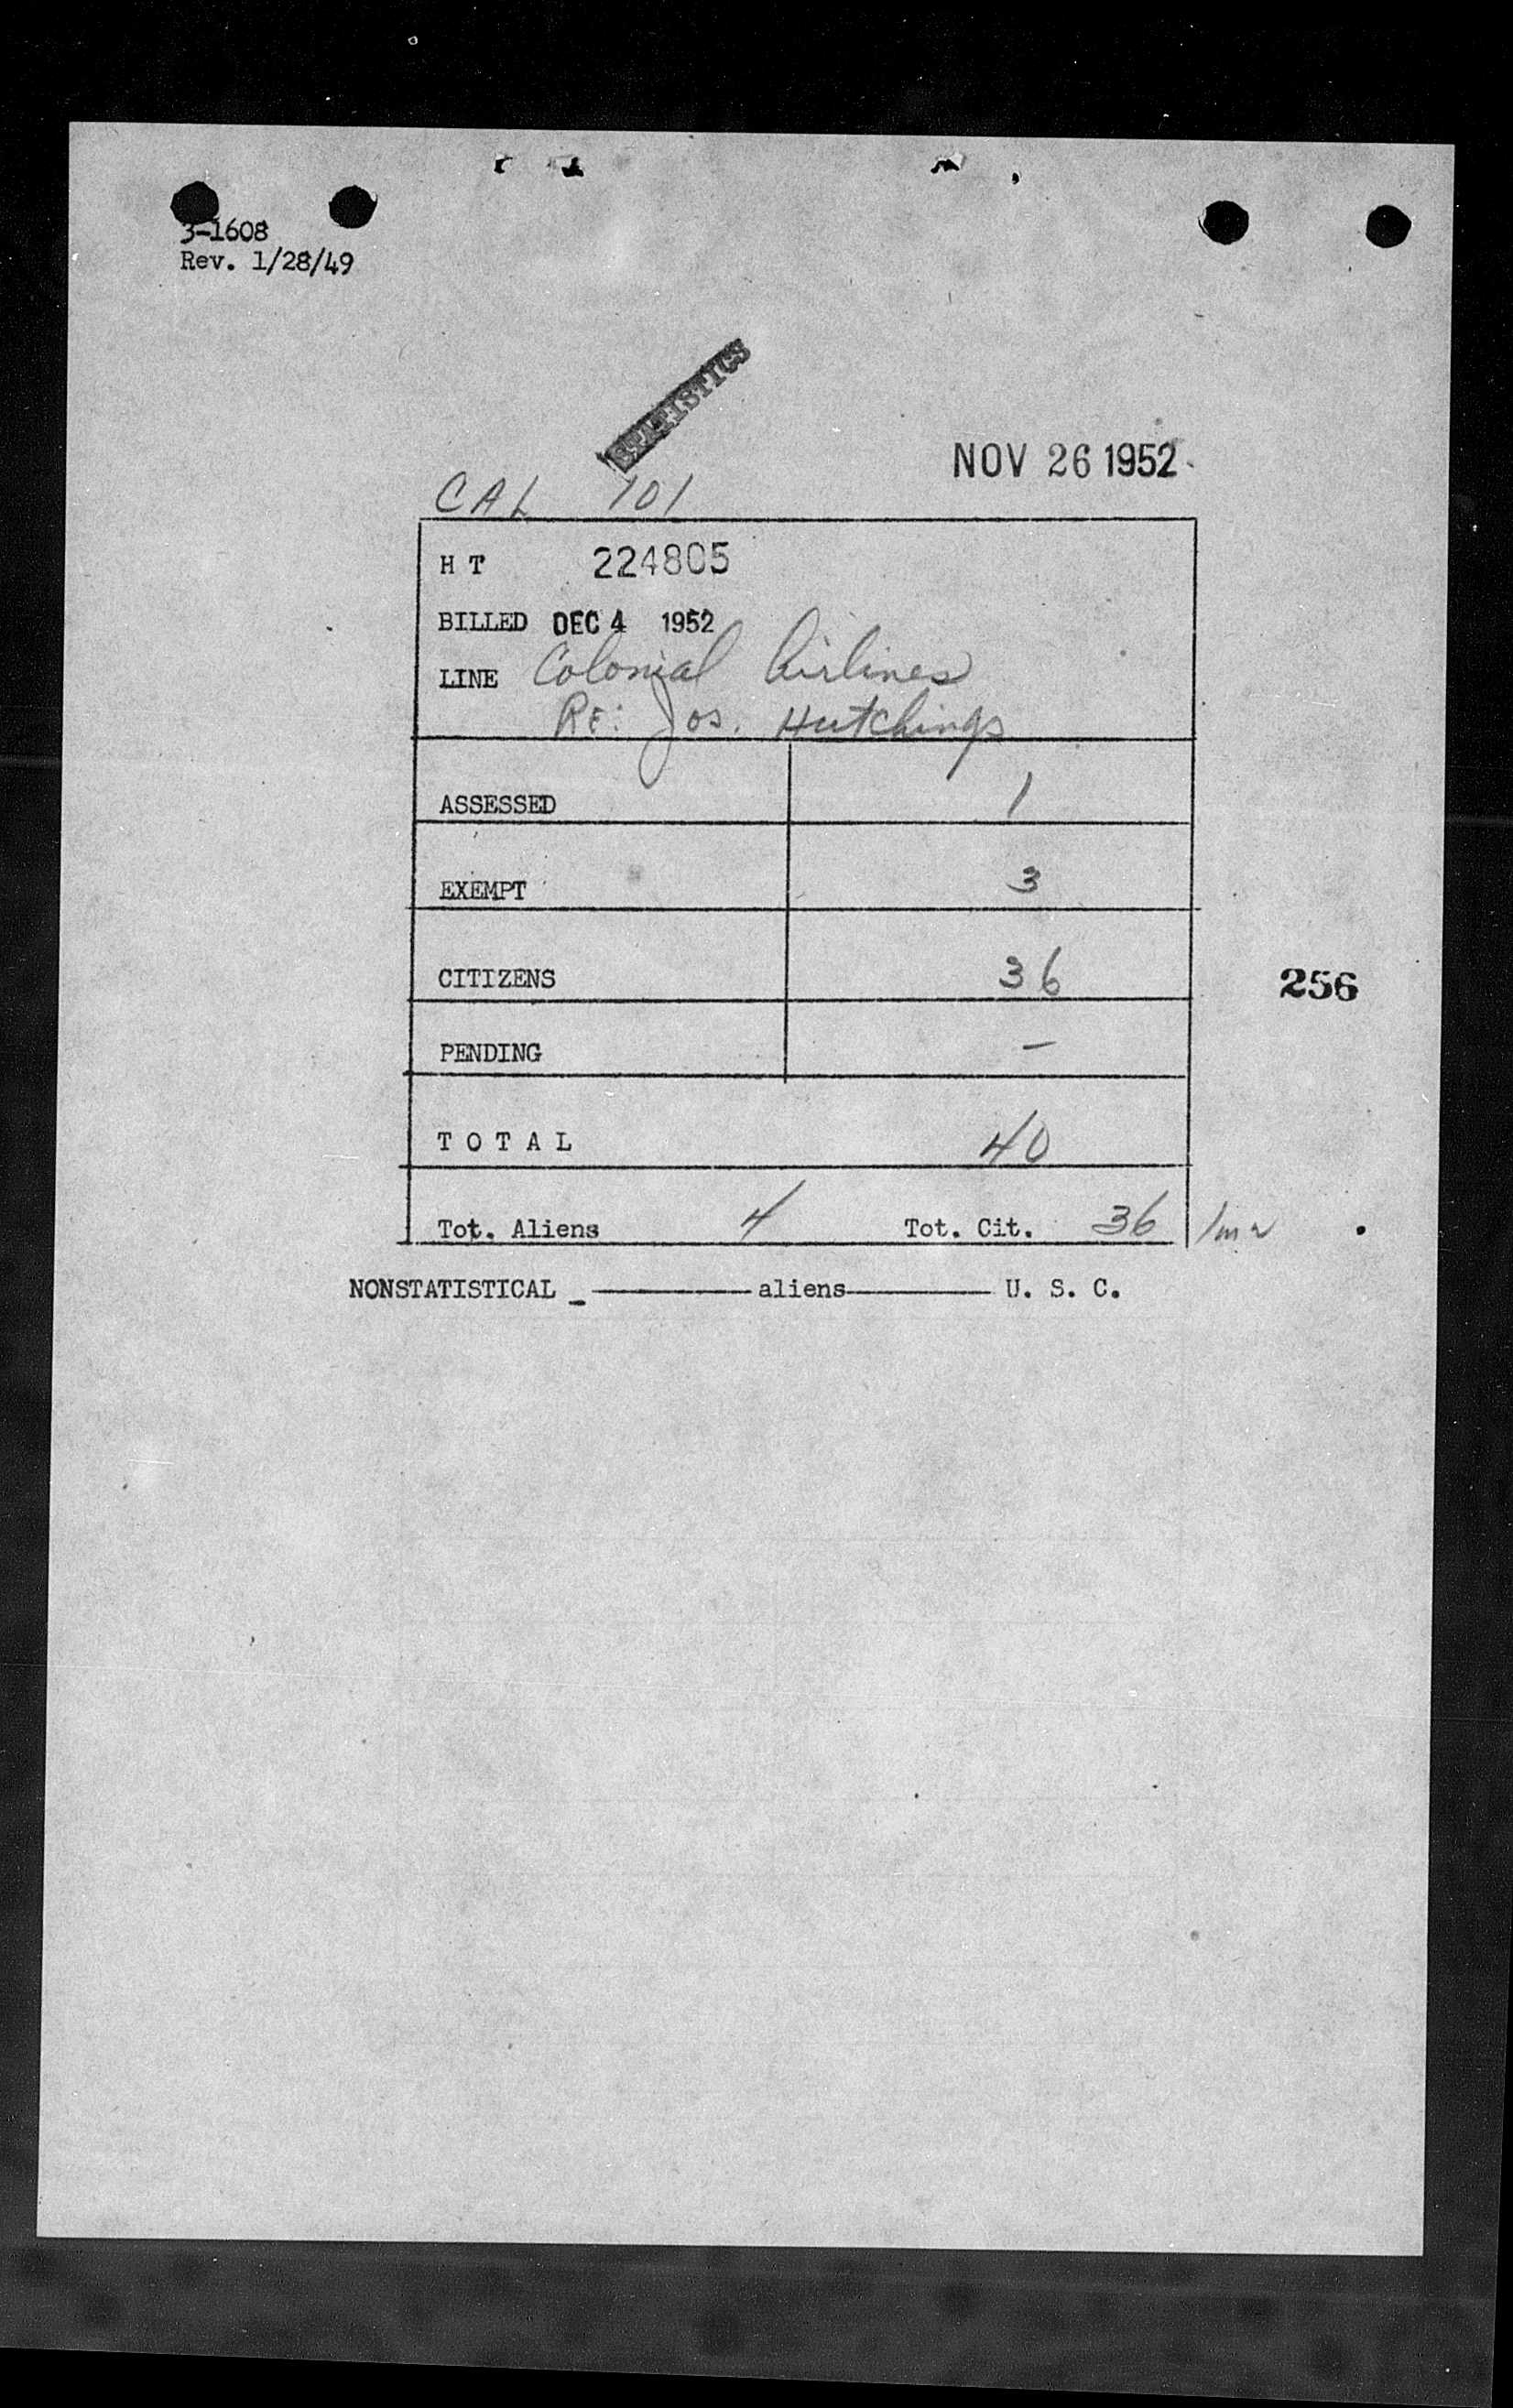 3-1608
Rev. 1/28/49
STATISTICS
NOV 26 1952
CAL 101
H T 224805
BILLED DEC 4 1952
LINE Colonial Airlines
RE: Jos. Hutchings
ASSESSED 1
EXEMPT 3
CITIZENS 36
256
PENDING –
T O T A L 40
Tot. Aliens 4 Tot. Cit. 36
NONSTATISTICAL _ ———— aliens ———— U. S. C.